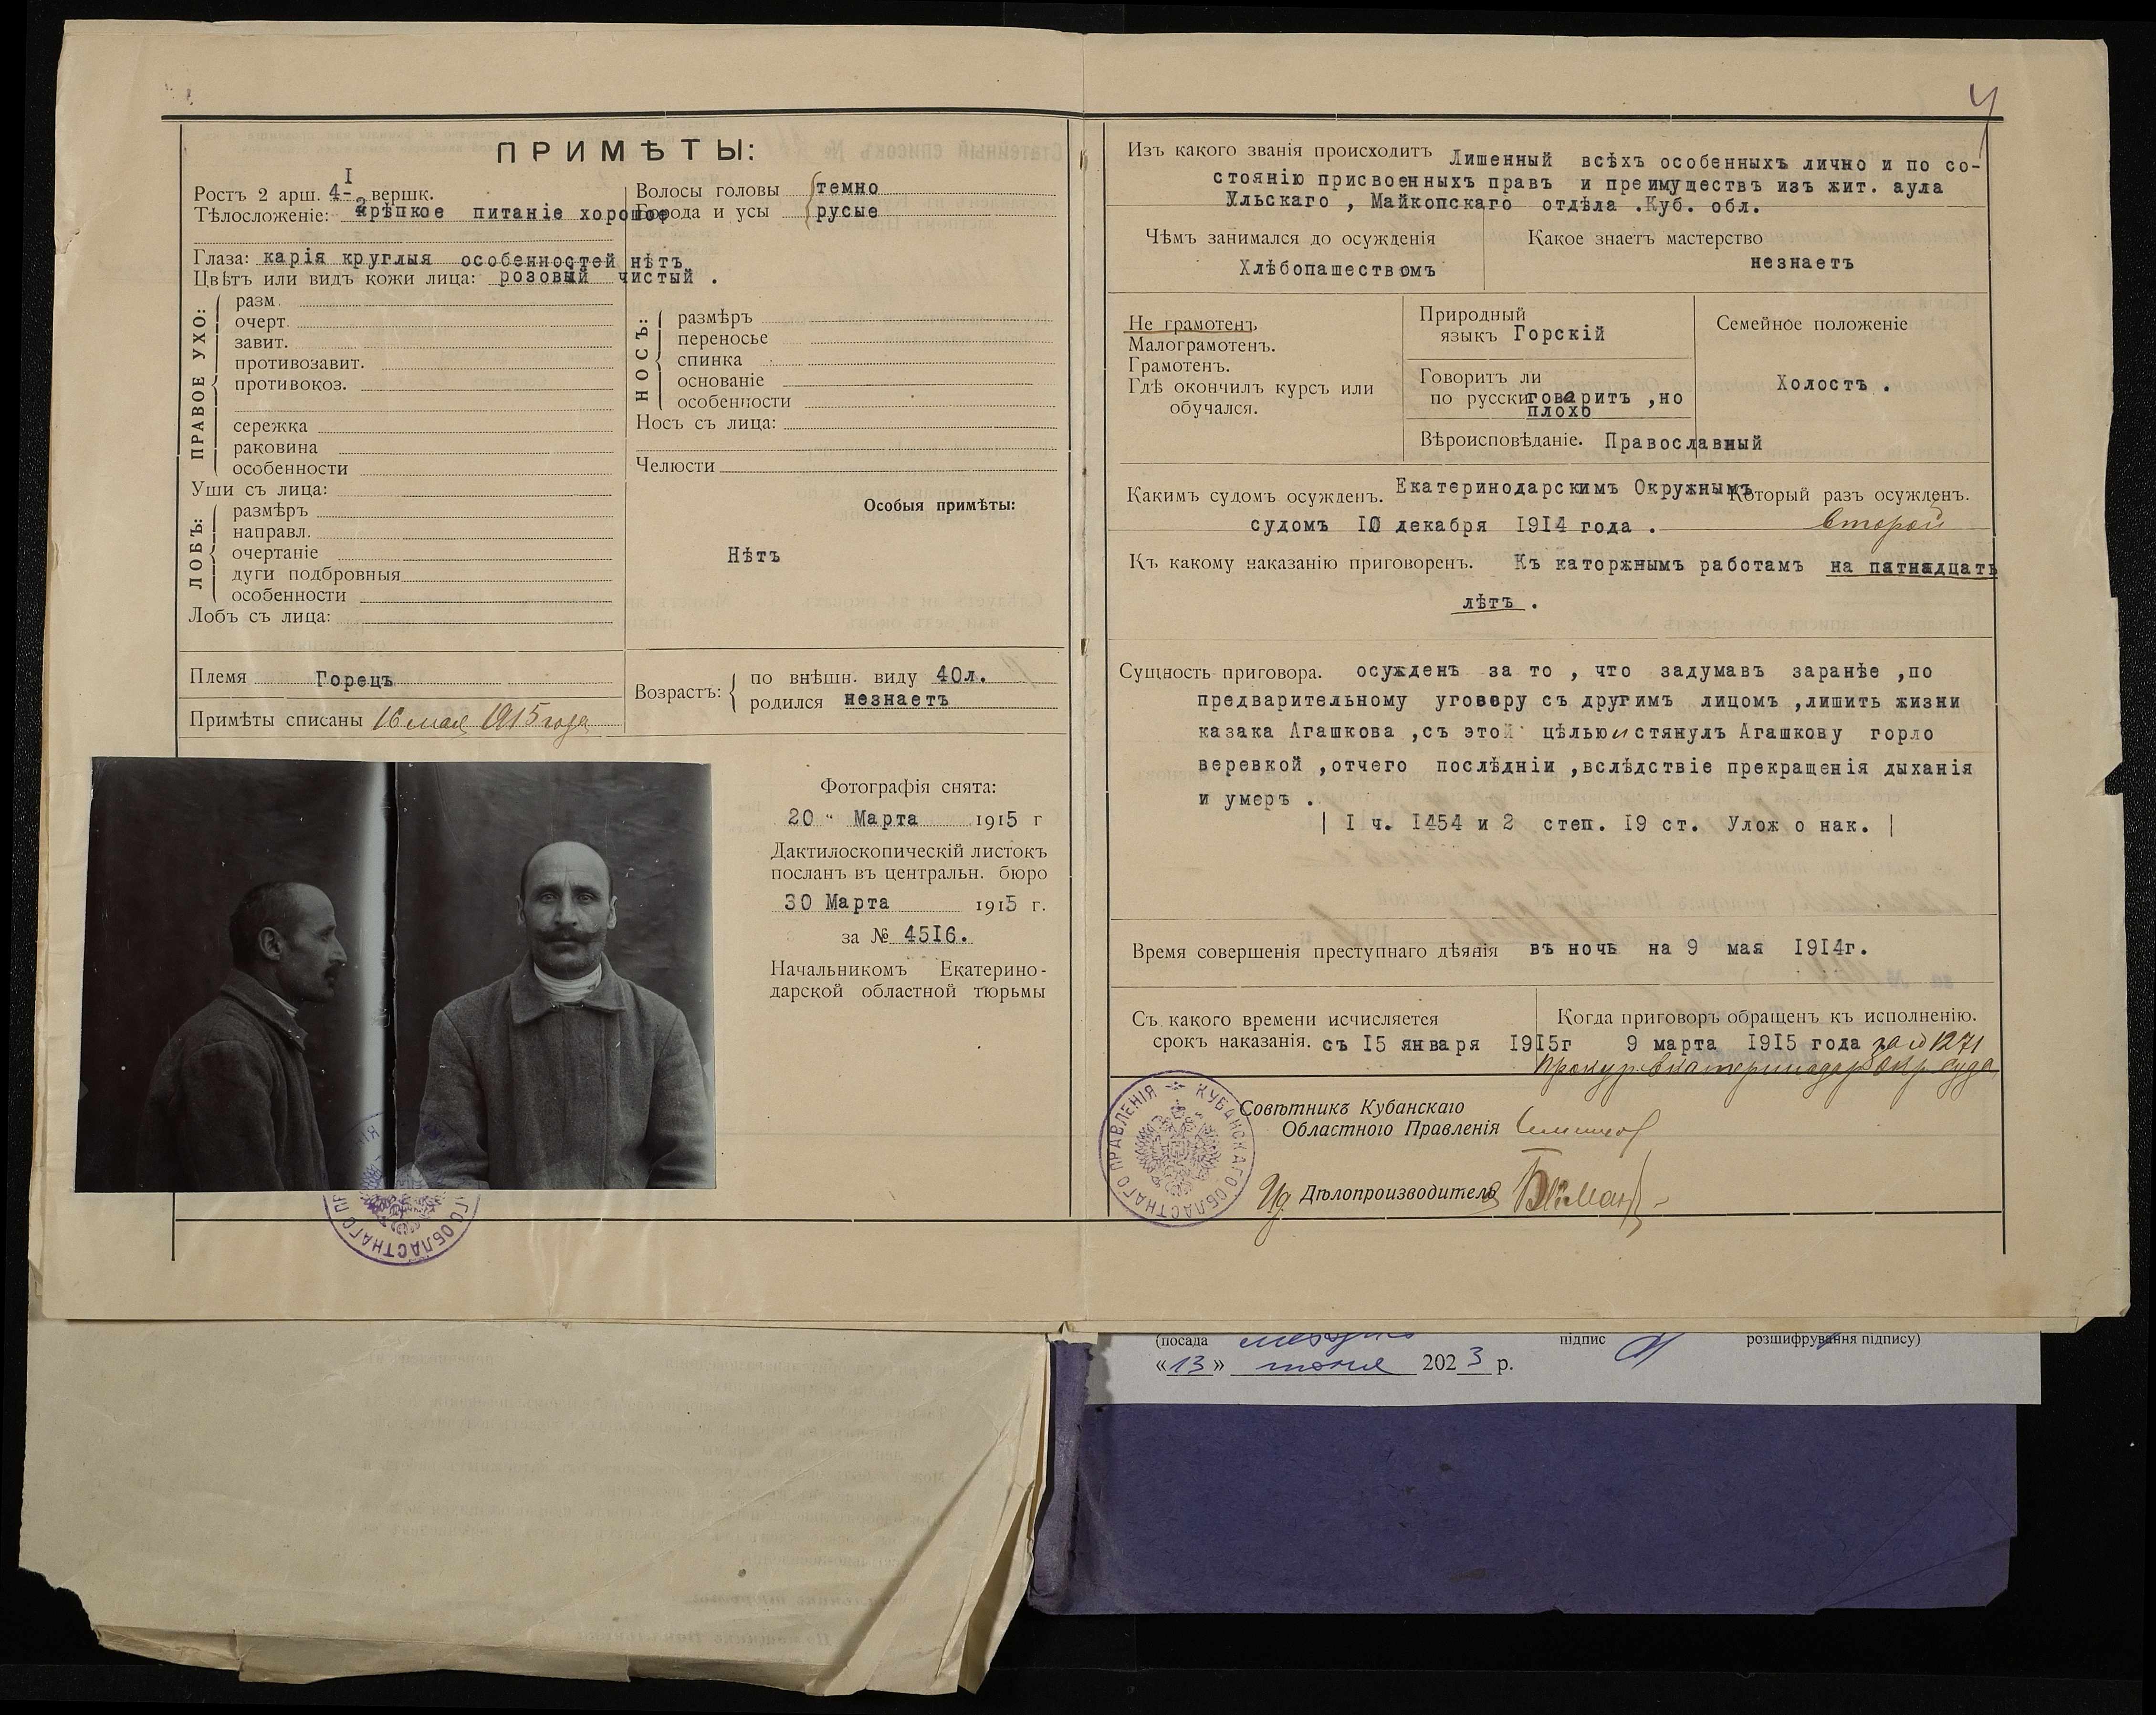 ПРИМѢТЫ:
Ростъ 2 арш. 4-I/2 вершк.
Тѣлосложеніе: крѣпкое питаніе хорошое
Глаза: карія круглыя особенностей нѣтъ
Цвѣтъ или видъ кожи лица: розовый чистый .
ПРАВОЕ УХО:
разм.
очерт.
завит.
противозавит.
противокоз.
сережка
раковина
особенности
Уши съ лица:
ЛОБЪ:
размѣръ
направл.
очертаніе
дуги подбровныя
особенности
Лобъ съ лица:
Волосы головы темно
Борода и усы русые
НОСЪ:
размѣръ
переносье
спинка
основаніе
особенности
Носъ съ лица:
Челюсти
Особыя примѣты:
Нѣтъ
Племя Горецъ
Примѣты списаны 16 мая 1915 года
Возрастъ:
по внѣшн. виду 40л.
родился незнаетъ
Фотографія снята:
20 " Марта 1915 г
Дактилоскопическій листокъ
посланъ въ центральн. бюро
30 Марта 1915 г.
за № 4516.
Начальникомъ Екатерино-
дарской областной тюрьмы
Изъ какого званія происходитъ Лишенный всѣхъ особенныхъ лично и по со-
стоянію присвоенныхъ правъ и преимуществъ изъ жит. аула
Ульскаго , Майкопскаго отдѣла .Куб. обл.
Чѣмъ занимался до осужденія
Хлѣбопашествомъ
Какое знаетъ мастерство
незнаетъ
Не грамотенъ
Малограмотенъ.
Грамотенъ.
Гдѣ окончилъ курсъ или
обучался.
Природный
языкъ Горскій
Говоритъ ли
по русски говаритъ ,но
плохо
Вѣроисповѣданіе. Православный
Семейное положеніе
Холостъ .
Какимъ судомъ осужденъ. Екатеринодарскимъ Окружнымъ
судомъ 10 декабря 1914 года .
Который разъ осужденъ.
второй
Къ какому наказанію приговоренъ. Къ каторжнымъ работамъ на пятнадцать
лѣтъ .
Сущность приговора. осужденъ за то , что задумавъ заранѣе ,по
предварительному уговору съ другимъ лицомъ ,лишить жизни
казака Агашкова ,съ этой цѣлью и стянулъ Агашкову горло
веревкой ,отчего послѣдніи ,вслѣдствіе прекращенія дыханія
и умеръ .
| I ч. I454 и 2 степ. I9 ст. Улож о нак. |
Время совершенія преступнаго дѣянія въ ночь на 9 мая 1914г.
Съ какого времени исчисляется
срокъ наказанія. съ I5 января I9I5г
Когда приговоръ обращенъ къ исполненію.
9 марта I9I5 года за № 1271
Прокур. Екатеринодар. Окр. Суда
Совѣтникъ Кубанскаго
Областного Правленія
Ид. Дѣлопроизводителя
КУБАНСКАГО ОБЛАСТНАГО ПРАВЛЕНІЯ
(посада
підпис
розшифрування підпису)
«13» 2023 р.